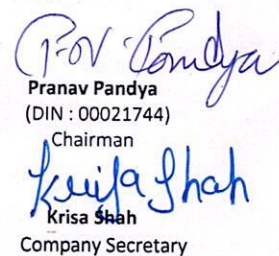 Pranav Pandya
(DIN : 00021744)
Chairman
Krisa Shah
Krisa Shah
Company Secretary